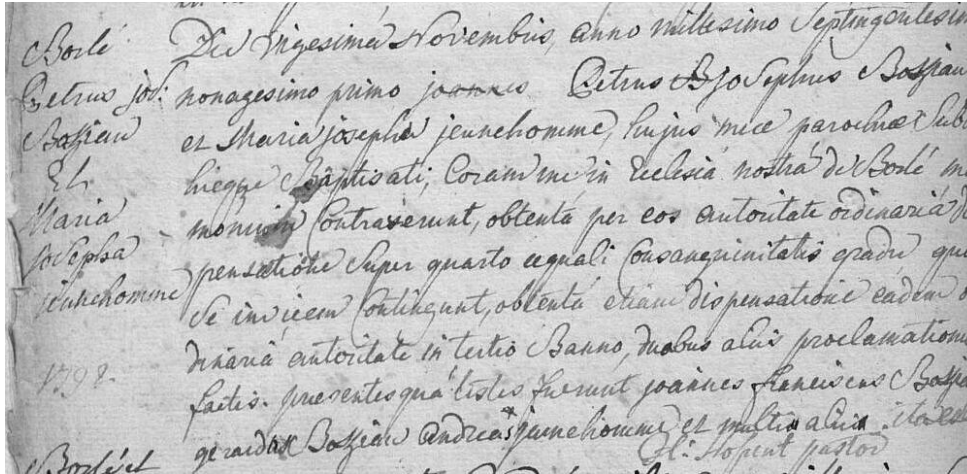 Borlé
Petrus jos:
Bossiau
Et
Maria
josepha
jeunehomme
1798.
Borlé et
Die vigesima Novembris, anno millesimo Septingentesim
nonagesimo primo joannes Petrus B josephus Bossiau
et Maria josepha jeunehomme, hujus meæ parochiæ Sub
hicque Baptisati, Coram me, in Ecclesiâ nostrâ de Borlé ma
monium Contraxerunt, obtentâ per eos autoritate ordinariâ di
pensatione Super quarto æquali Consanguinitatis gradu quo
Se invicem Contingunt, obtentâ etiam dispensatione eadem o
dinariâ autoritate in tertio Banno, duobus aliis proclamationi
factis. presentesquè testes fuerunt joannes franciscus Bossia
gerardus Bossiau andreas jeunehomme et multis aliis . ita est
pastor